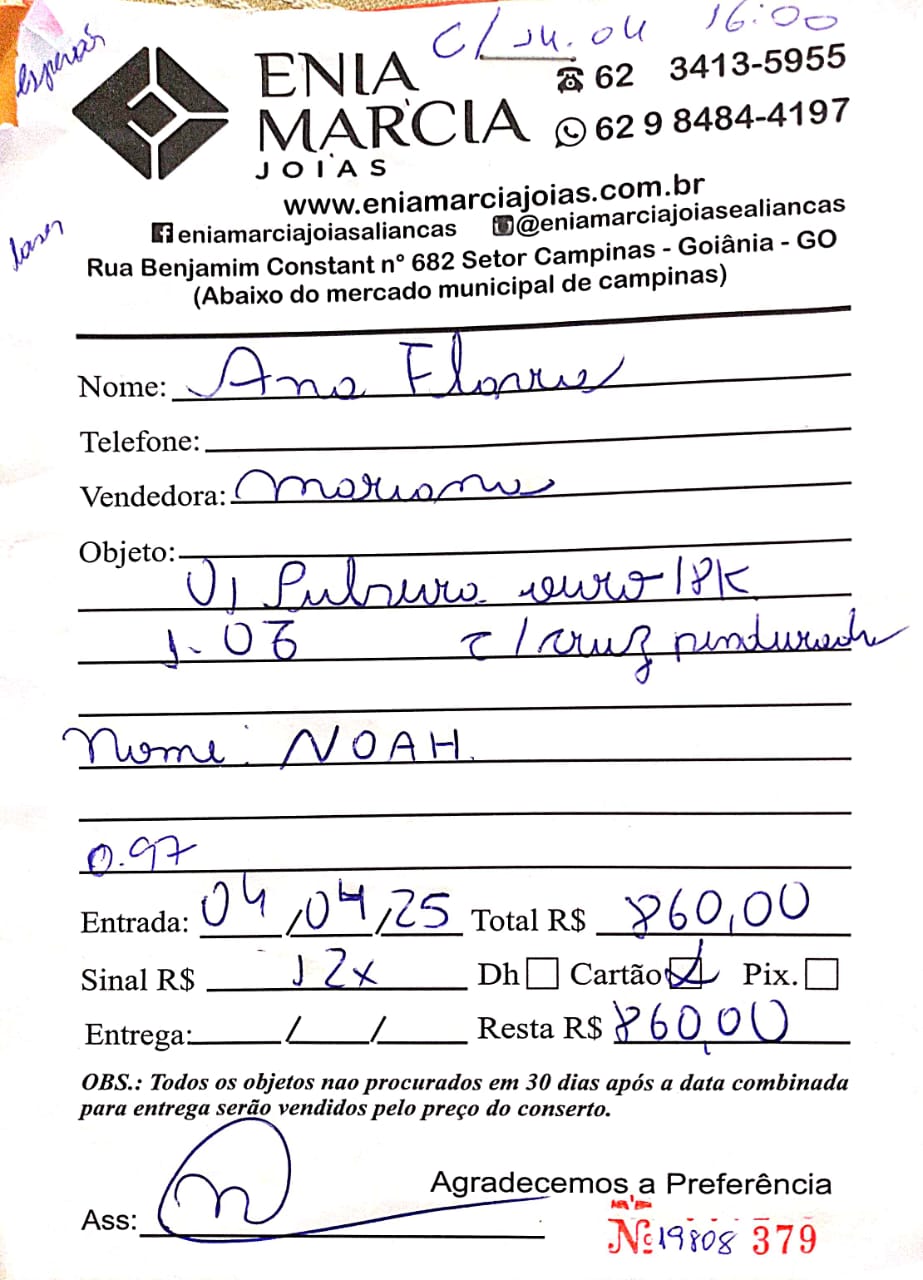 C/ 14.04 16:00
esperar
ENIA
MARCIA
JOIAS
62 3413-5955
62 9 8484-4197
www.eniamarciajoias.com.br
eniamarciajoiasaliancas @eniamarciajoiasealiancas
laser
Rua Benjamim Constant nº 682 Setor Campinas - Goiânia - GO
(Abaixo do mercado municipal de campinas)
Nome: Ana
Telefone:
Vendedora: Mariana
Objeto:
01 Pulseira ouro 18K
c/cruz pendurada
Nome: NOAH.
0.97
Entrada: 04/04/25 Total R$ 860,00
Sinal R$ 12x Dh Cartão Pix.
Entrega: / / Resta R$ 860,00
OBS.: Todos os objetos nao procurados em 30 dias após a data combinada
para entrega serão vendidos pelo preço do conserto.
Agradecemos a Preferência
Ass:
Nº 19808 379